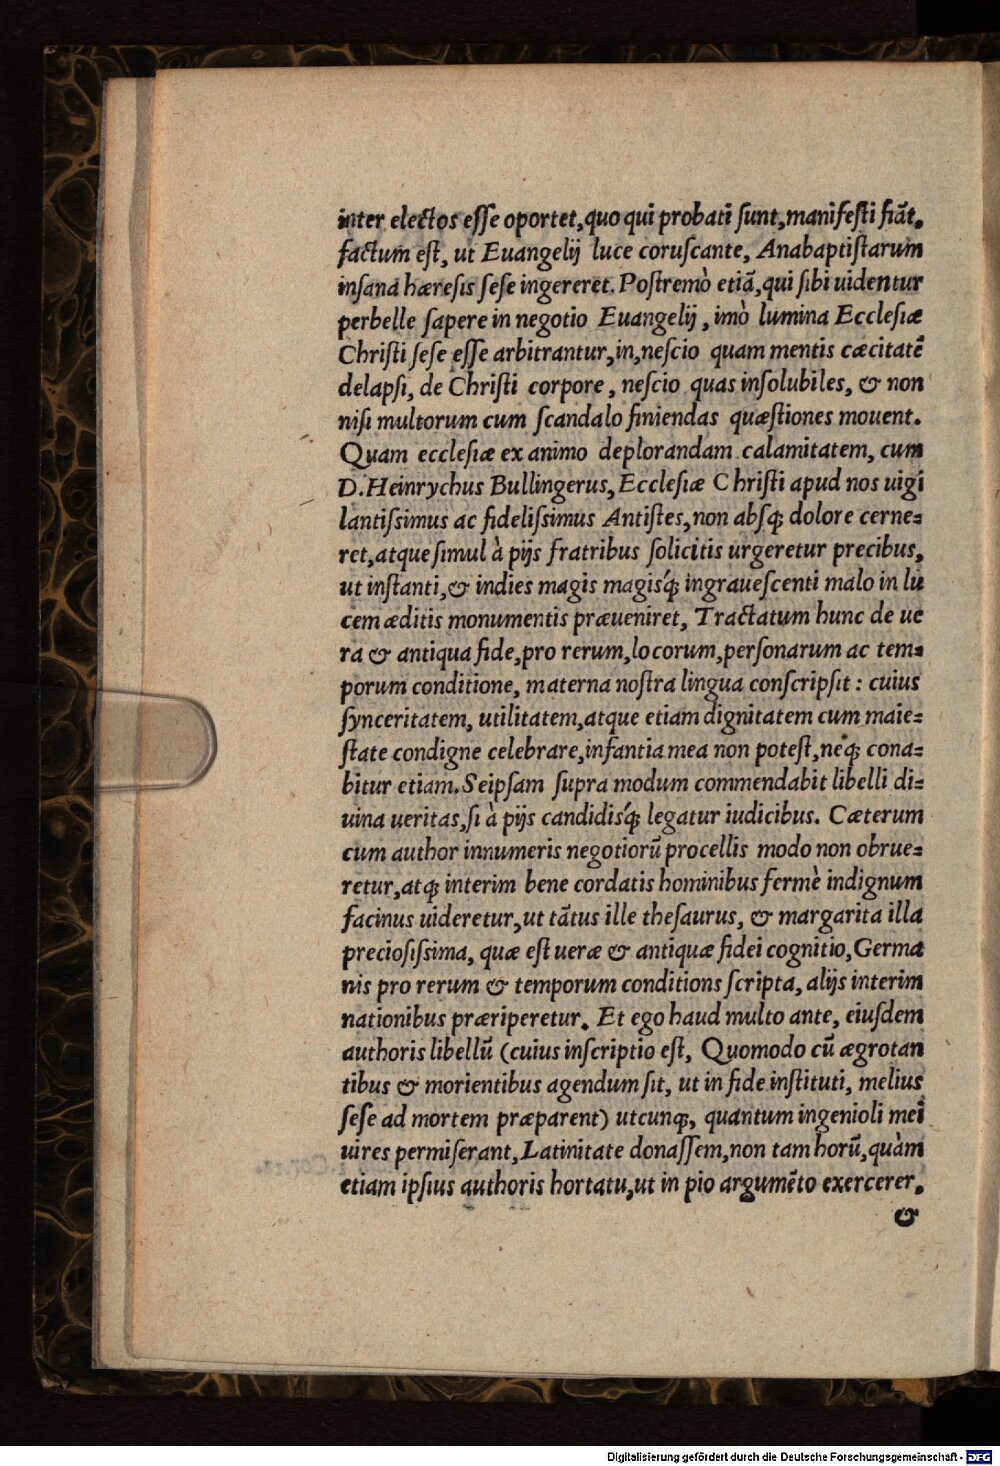 inter electos eſſe oportet,quo qui probati ſunt,manifeſti fiāt.
factum eſt, ut Euangelij luce coruſcante, Anabaptiſtarum
inſana hæreſis ſeſe ingereret. Poſtremò etiā,qui ſibi uidentur
perbelle ſapere in negotio Euangelij, imò lumina Eccleſiæ
Chriſti ſeſe eſſe arbitrantur,in,neſcio quam mentis cæcitatē
delapſi, de Chriſti corpore, neſcio quas inſolubiles, & non
niſi multorum cum ſcandalo finiendas quæſtiones mouent.
Quam eccleſiæ ex animo deplorandam calamitatem, cum
D. Heinrychus Bullingerus, Eccleſiæ Chriſti apud nos uigi
lantiſsimus ac fideliſsimus Antiſtes,non abſq; dolore cerne=
ret,atque ſimul à pijs fratribus ſolicitis urgeretur precibus,
ut inſtanti,& indies magis magisq́; ingraueſcenti malo in lu
cem æditis monumentis præueniret, Tractatum hunc de ue
ra & antiqua fide,pro rerum,locorum,perſonarum ac tem=
porum conditione, materna noſtra lingua conſcripſit : cuius
ſynceritatem, utilitatem,atque etiam dignitatem cum maie=
ſtate condigne celebrare,infantia mea non poteſt,neq; cona=
bitur etiam. Seipſam ſupra modum commendabit libelli di=
uina ueritas,ſi à pijs candidisq́; legatur iudicibus. Cæterum
cum author innumeris negotiorū procellis modo non obrue=
retur,atq; interim bene cordatis hominibus fermè indignum
facinus uideretur,ut tātus ille theſaurus, & margarita illa
precioſiſsima, quæ eſt ueræ & antiquæ fidei cognitio,Germa
nis pro rerum & temporum conditions ſcripta, alijs interim
nationibus præriperetur. Et ego haud multo ante, eiuſdem
authoris libellū (cuius inſcriptio eſt, Quomodo cū ægrotan
tibus & morientibus agendum ſit, ut in fide inſtituti, melius
ſeſe ad mortem præparent) utcunq;, quantum ingenioli mei
uires permiſerant,Latinitate donaſſem,non tam horū,quàm
etiam ipſius authoris hortatu,ut in pio argumēto exercerer.
&
Digitalisierung gefördert durch die Deutsche Forschungsgemeinschaft - DFG